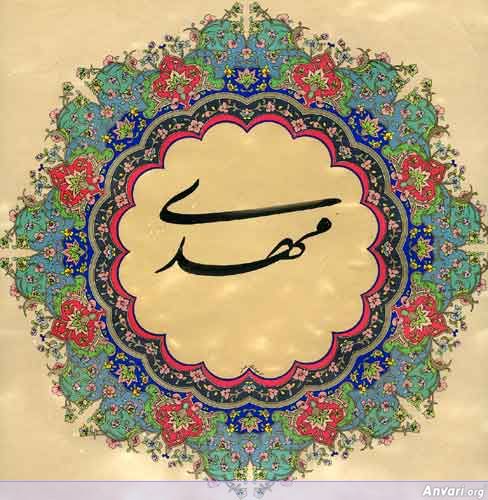 مهدی
Anvari.org